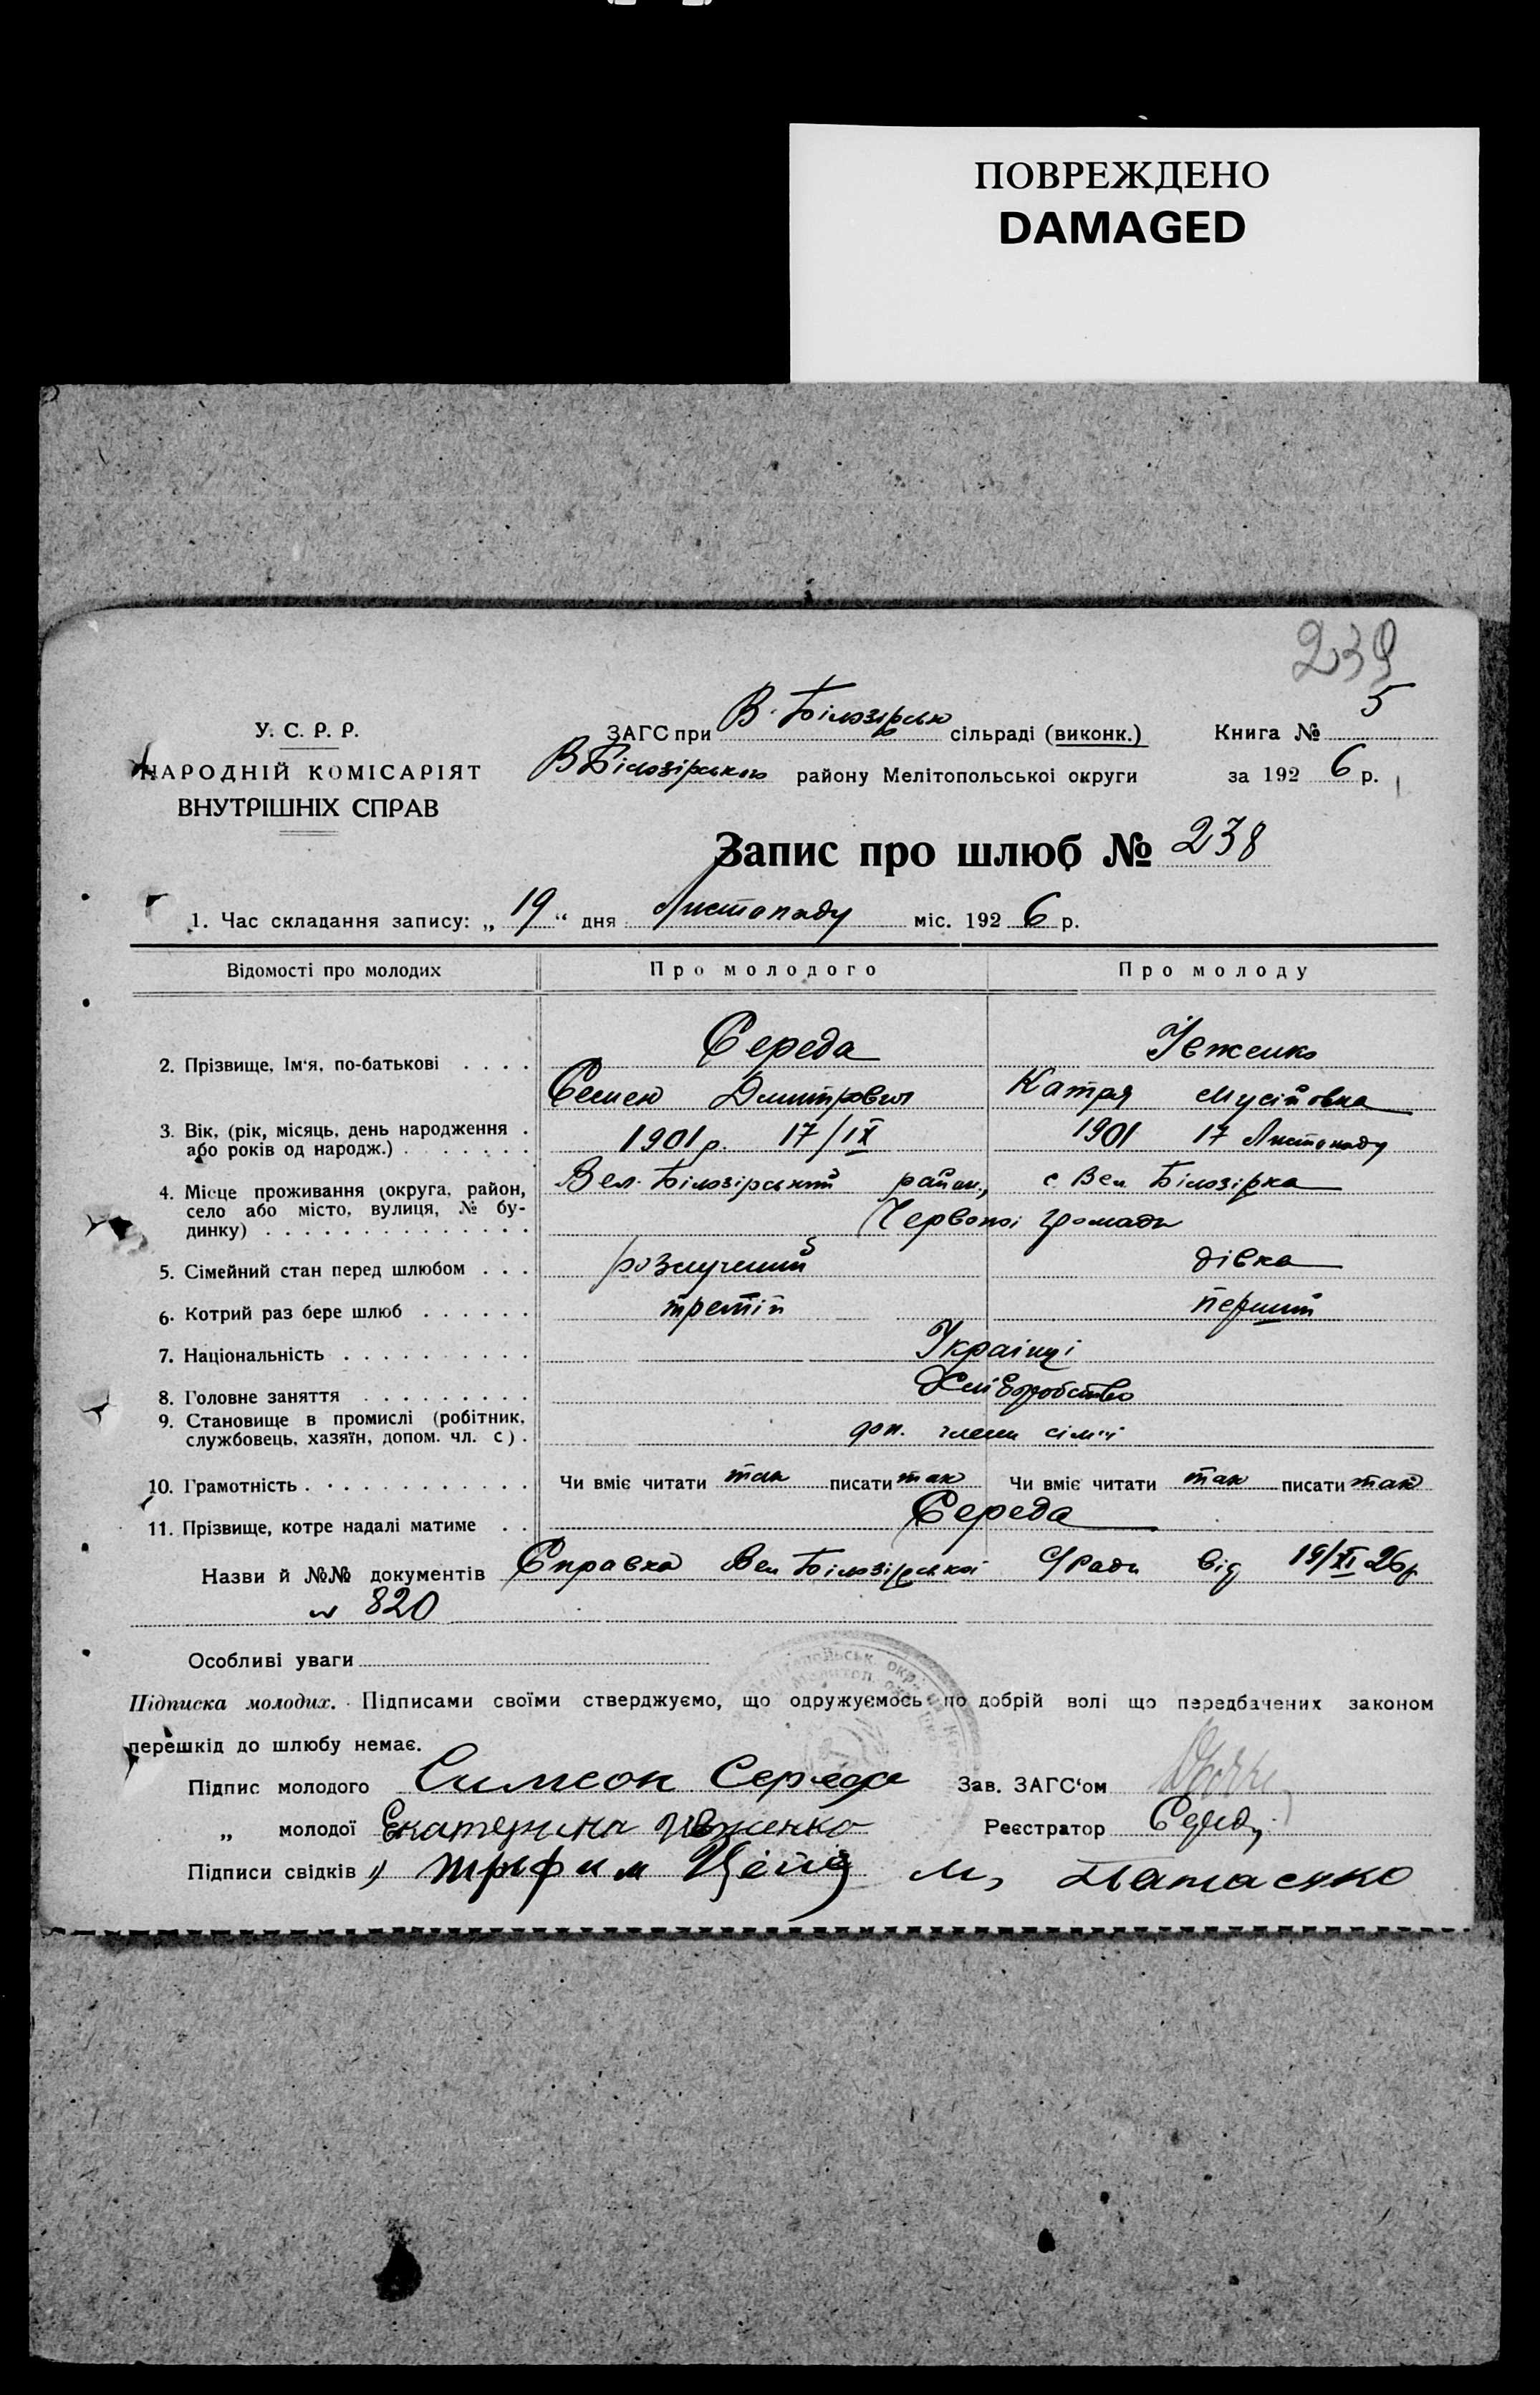 ПОВРЕЖДЕНО
DAMAGED
239
У. С. Р. Р.
НАРОДНІЙ КОМІСАРІЯТ
ВНУТРІШНІХ СПРАВ
ЗАГС при В. Білозірськ сільраді (виконк.) Книга № 5
В Білозірського району Мелітопольскої округи за 1926 р.
Запис про шлюб № 238
1. Час складання запису: „19“ дня Листопаду міс. 1926 р.
Відомості про молодих Про молодого Про молоду
2. Прізвище, Ім'я, по-батькові . . . . Середа Івженко
Семен Дмитрович Катря Мусіївна
3. Вік, (рік, місяць, день народження . 1901 р. 17/IX 1901 17 Листопаду
або років од народж.) . . . . . . .
4. Місце проживання (округа, район, Вел. Білозірський район, с Вел Білозірка
село або місто, вулиця, № бу-
динку) . . . . . . . . . . . . . . Червоної громади
5. Сімейний стан перед шлюбом . . . розлучений дівка
6. Котрий раз бере шлюб . . . . . . третій перший
7. Національність . . . . . . . . . . Українці
8. Головне заняття . . . . . . . . . Хліборобство
9. Становище в промислі (робітник,
службовець, хазяїн, допом. чл. с) . доп. члени сім'ї
10. Грамотність . . . . . . . . . . . . Чи вміє читати так писати так Чи вміє читати так писати так
11. Прізвище, котре надалі матиме . . Середа
Назви й №№ документів Справка Вел Білозірської С/Ради від 19/XI 26 р
№ 820
Особливі уваги
Підписка молодих. Підписами своїми стверджуємо, що одружуємось по добрій волі що передбачених законом
перешкід до шлюбу немає.
Підпис молодого Симеон Середа Зав. ЗАГС'ом
„ молодої Екатерина Ивженко Реєстратор
Підписи свідків 1) Трифим М,